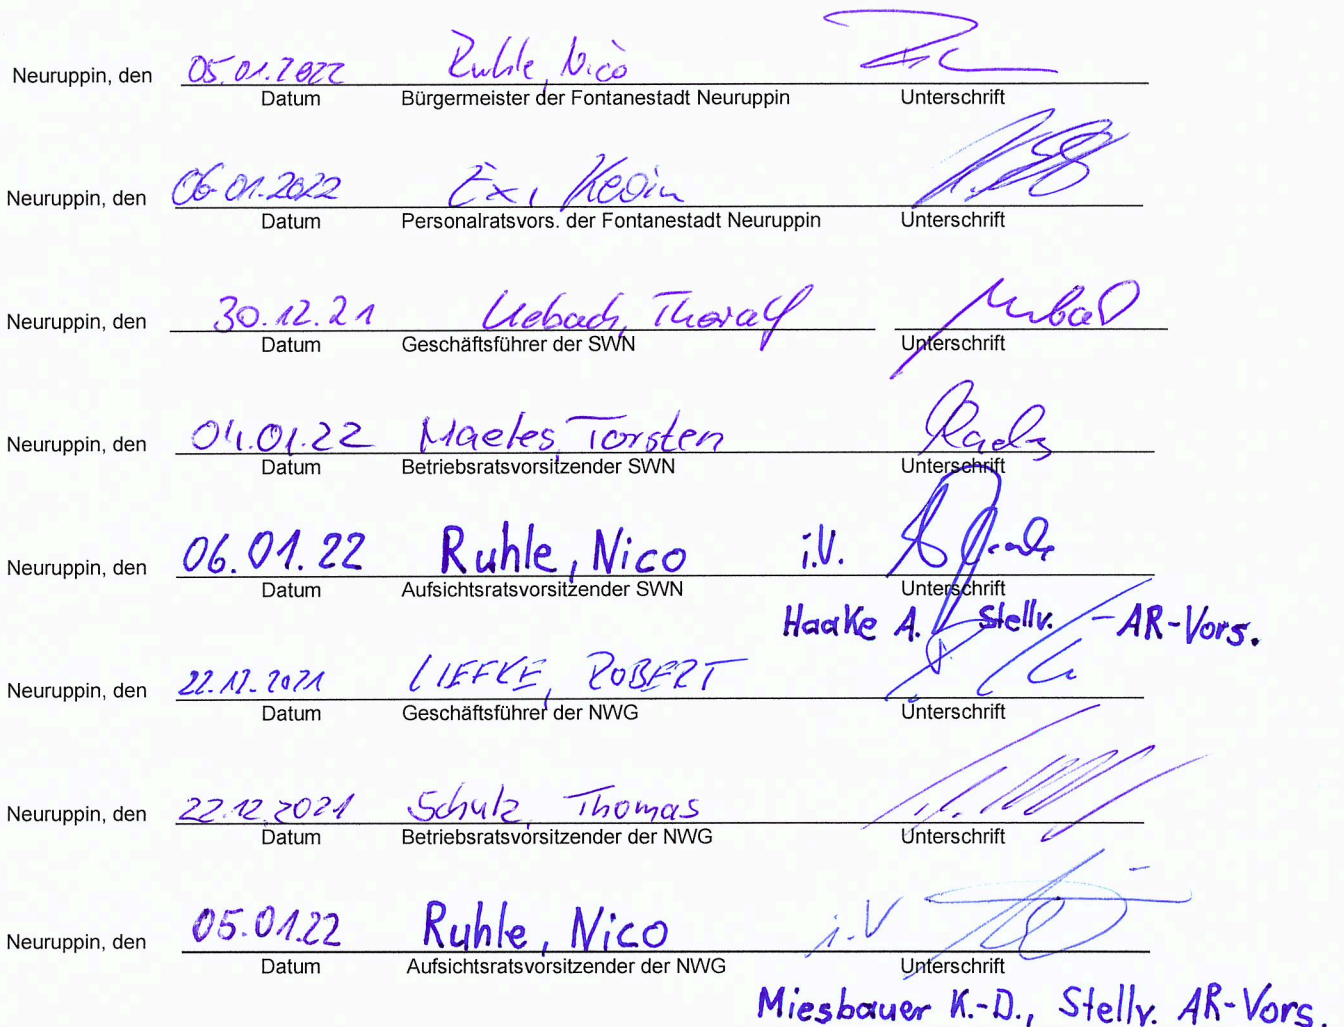 Neuruppin, den 05.01.2022 Ruhle, Nico
Datum Bürgermeister der Fontanestadt Neuruppin Unterschrift
Neuruppin, den 06.01.2022 Ex, Kevin
Datum Personalratsvors. der Fontanestadt Neuruppin Unterschrift
Neuruppin, den 30.12.21 Uebach, Thoralf
Datum Geschäftsführer der SWN Unterschrift
Neuruppin, den 04.01.22 Torsten
Datum Betriebsratsvorsitzender SWN Unterschrift
Neuruppin, den 06.01.22 Ruhle, Nico i.V.
Datum Aufsichtsratsvorsitzender SWN Unterschrift
Haake A. Stellv. - AR-Vors.
Neuruppin, den 22.12.2021 LIEFKE, ROBERT
Datum Geschäftsführer der NWG Unterschrift
Neuruppin, den 22.12.2021 Schulz, Thomas
Datum Betriebsratsvorsitzender der NWG Unterschrift
Neuruppin, den 05.01.22 Ruhle, Nico i.V
Datum Aufsichtsratsvorsitzender der NWG Unterschrift
Miesbauer K.-D., Stellv. AR-Vors.